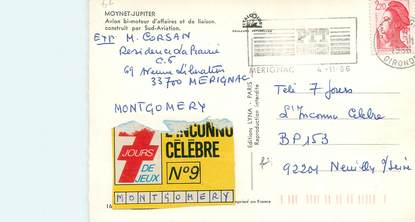 MOYNET-JUPITER
Avion bi-moteur d'affaires et de liaison.
construit par Sud-Aviation.
Exp: M. CORSAN
Residence da Prairie
C.5
69 Avenue Libération
33700 MERIGNAC
MONTGOMERY
L'INCONNU
CÉLÈBRE
7
JOURS
DE
JEUX
N°9
MONTGOMERY
16
PTT
MERIGNAC 4-11-86
GIRONDE
2,20
Editions LYNA - PARIS
Reproduction interdite
Télé 7 Jours
L'Inconnu Célèbre
BP 153
92201 Neuilly s/Seine